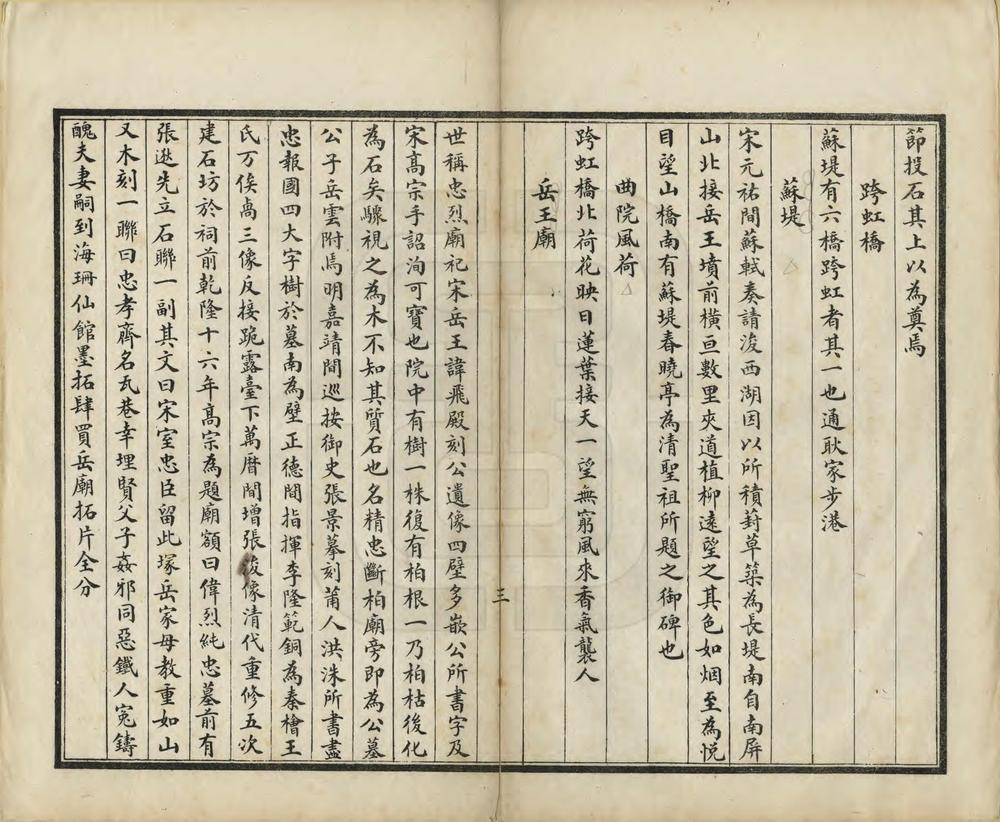 節投石其上以為奠焉
跨虹橋
蘇堤有六橋跨虹者其一也通耿家步港
蘇堤
宋元祐間蘇軾奏請浚西湖因以所積葑草築為長堤南自南屏
山北接岳王墳前橫亘數里夾道植柳遠望之其色如烟至為悅
目望山橋南有蘇堤春曉亭為清聖祖所題之御碑也
曲院風荷
跨虹橋北荷花映日蓮葉接天一望無窮風來香氣襲人
岳王廟
三
世稱忠烈廟祀宋岳王諱飛殿刻公遺像四壁多嵌公所書字及
宋高宗手詔洵可寶也院中有樹一株復有柏根一乃柏枯後化
為石矣驟視之為木不知其質石也名精忠斷柏廟旁即為公墓
公子岳雲附焉明嘉靖間巡按御史張景摹刻莆人洪洙所書盡
忠報國四大字樹於墓南為壁正德間指揮李隆範銅為秦檜王
氏万俟卨三像反接跪露臺下萬曆間增張俊像清代重修五次
建石坊於祠前乾隆十六年高宗為題廟額曰偉烈純忠墓前有
張遜先立石聯一副其文曰宋室忠臣留此塚岳家母教重如山
又木刻一聯曰忠孝齊名瓦巷幸埋賢父子姦邪同惡鐵人冤鑄
醜夫妻嗣到海珊仙館墨拓肆買岳廟拓片全分